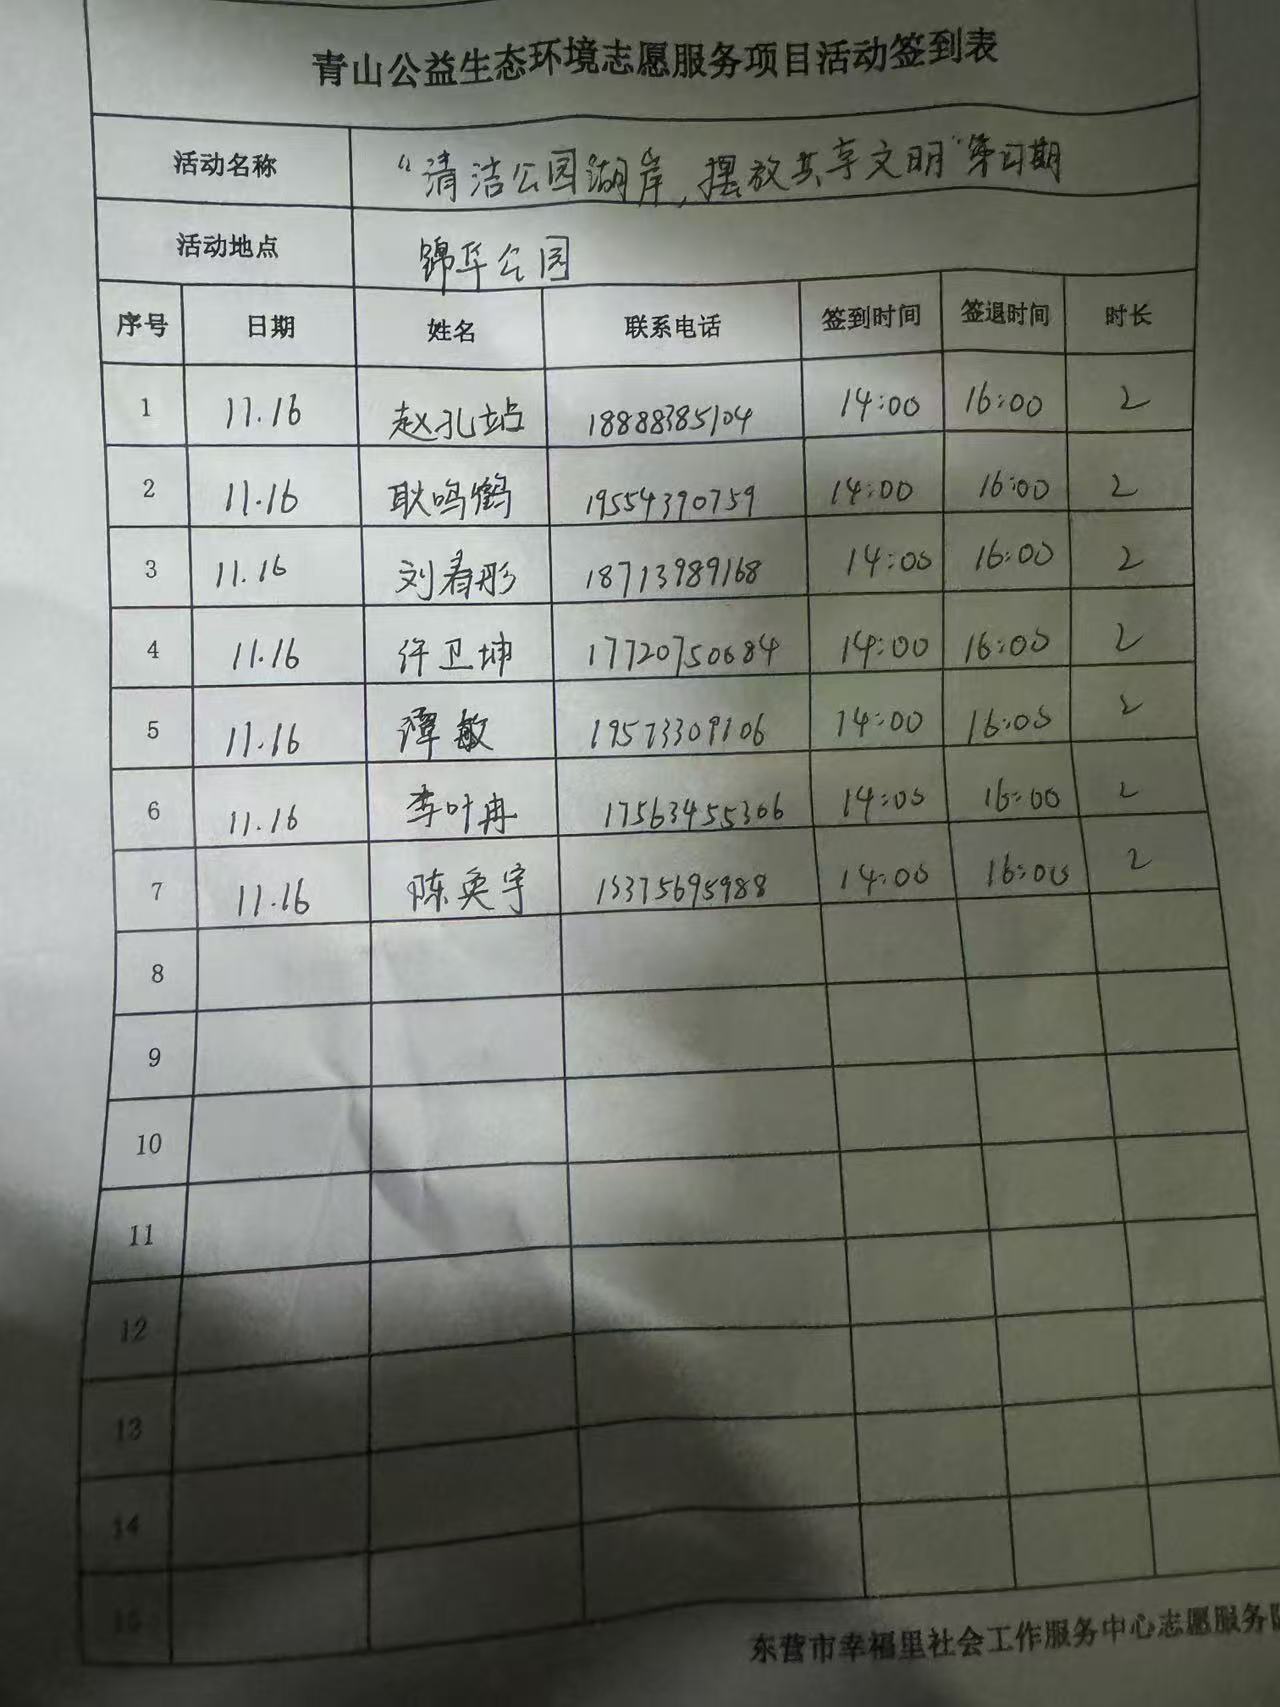 青山公益生态环境志愿服务项目活动签到表
活动名称 “清洁公园湖岸,摆放共享文明”第四期
活动地点 锦华公园
序号 日期 姓名 联系电话 签到时间 签退时间 时长
1 11.16 赵孔站 18888385104 14:00 16:00 2
2 11.16 耿鸣鹤 19554390759 14:00 16:00 2
3 11.16 刘春彤 18713989168 14:00 16:00 2
4 11.16 许卫坤 17720750684 14:00 16:00 2
5 11.16 谭敏 19573309106 14:00 16:00 2
6 11.16 李叶冉 17563455306 14:00 16:00 2
7 11.16 陈奂宇 15375695988 14:00 16:00 2
8
9
10
11
12
13
14
15
东营市幸福里社会工作服务中心志愿服务队